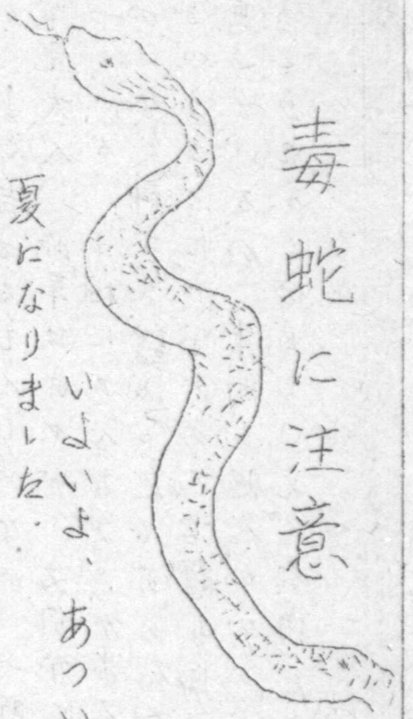 毒蛇に注意
いよいよ、あつい
夏になりました.